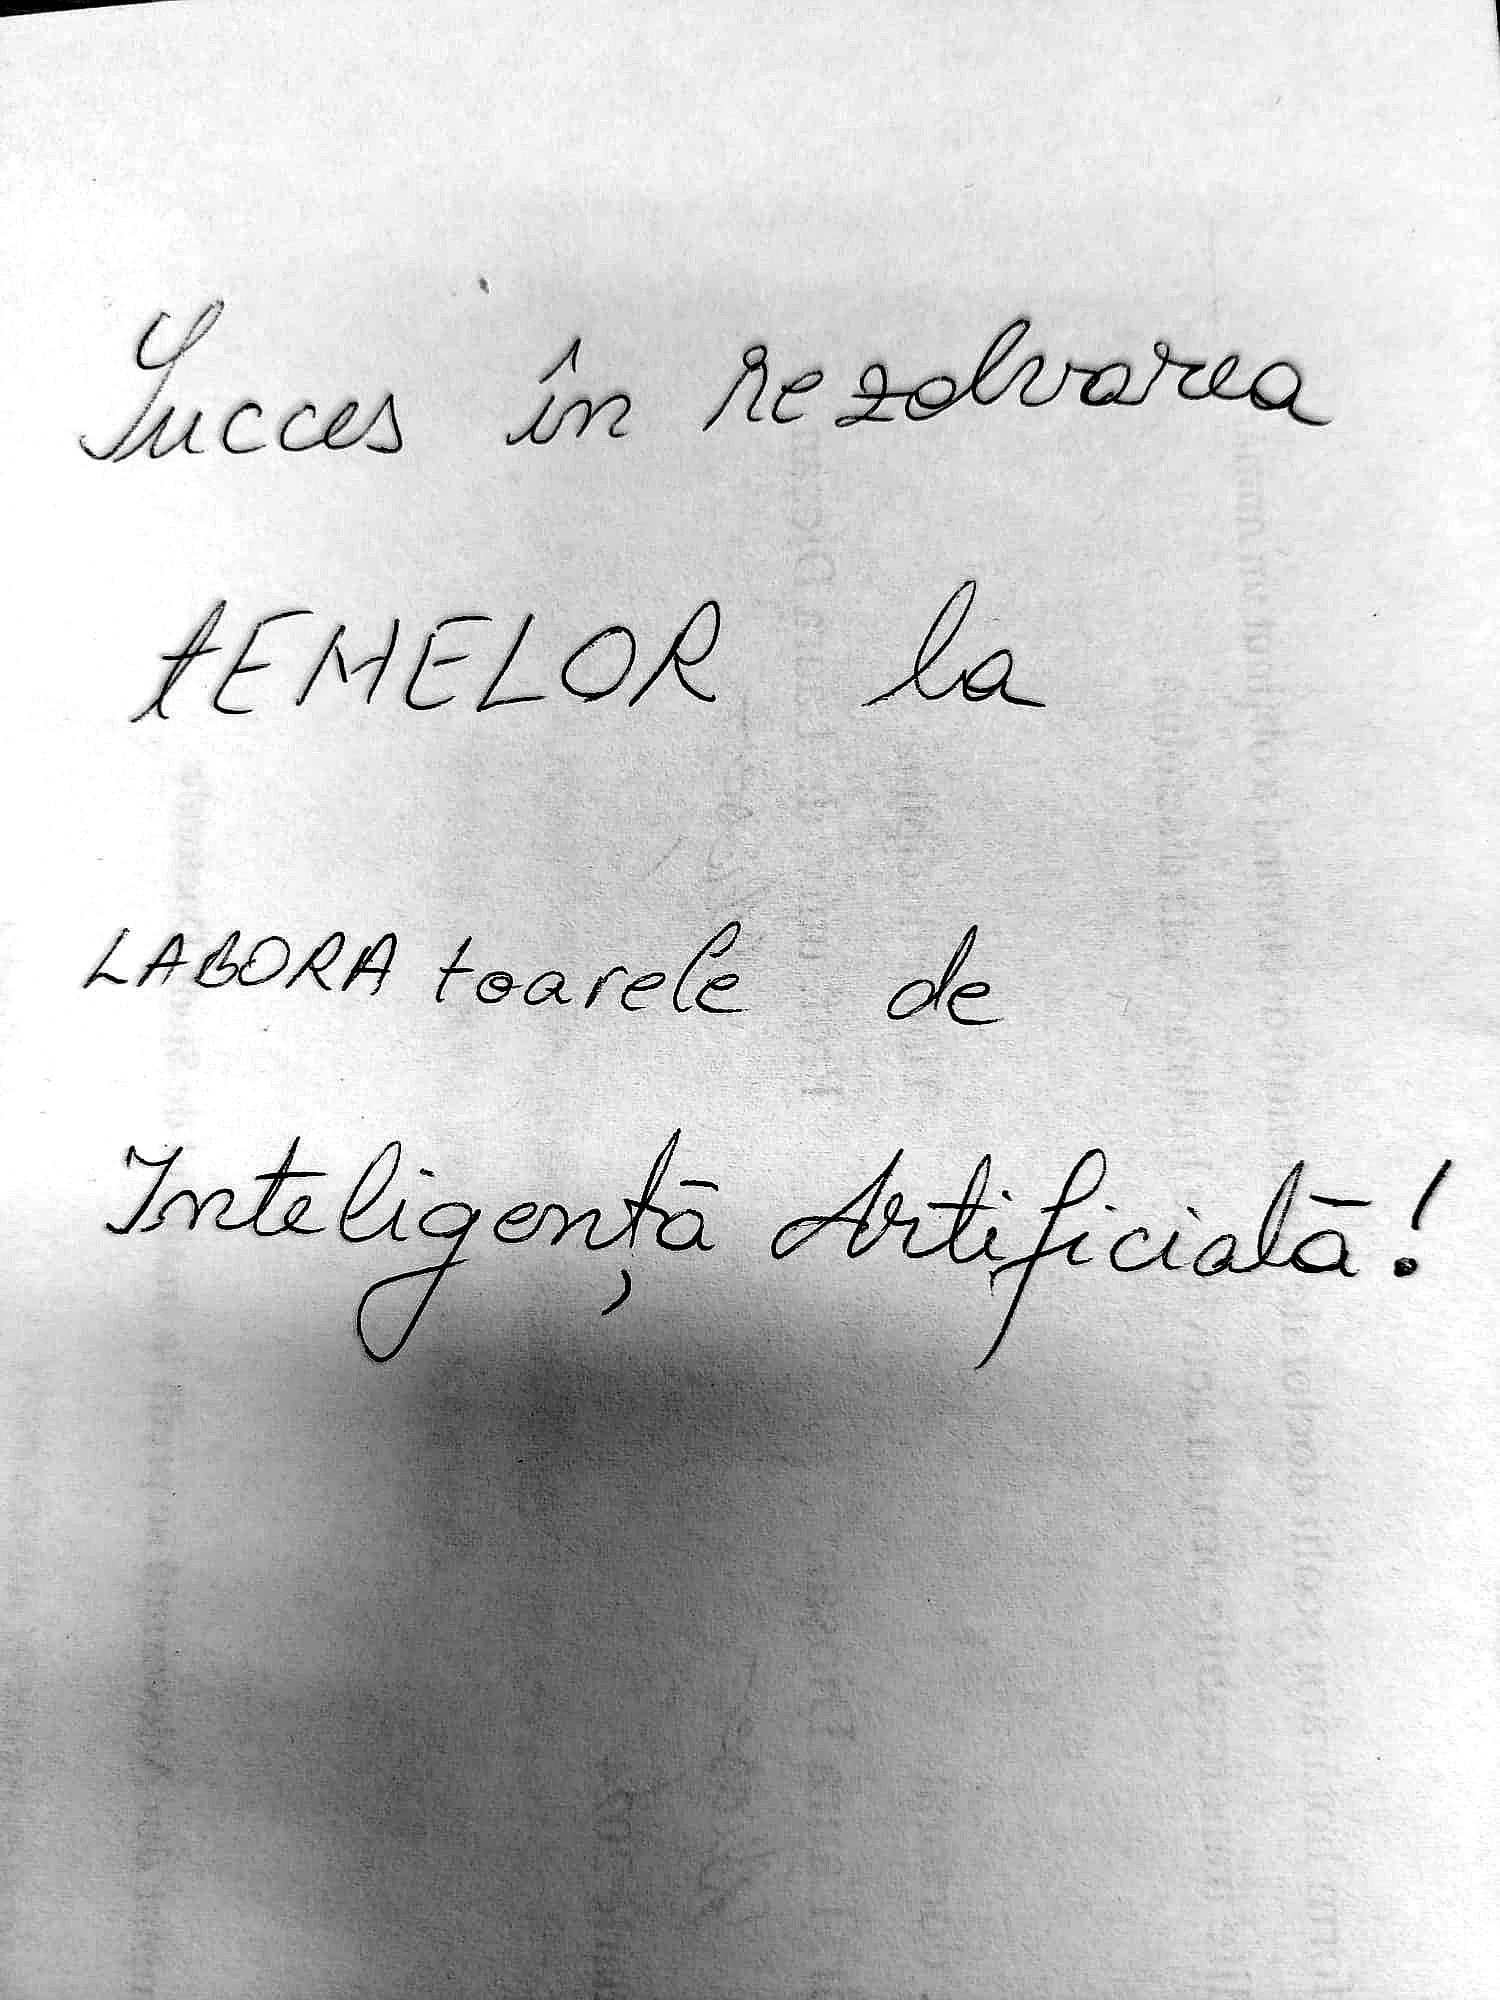 Succes în rezolvarea
tEMELOR la
LABORAtoarele de
Inteligență Artificială!